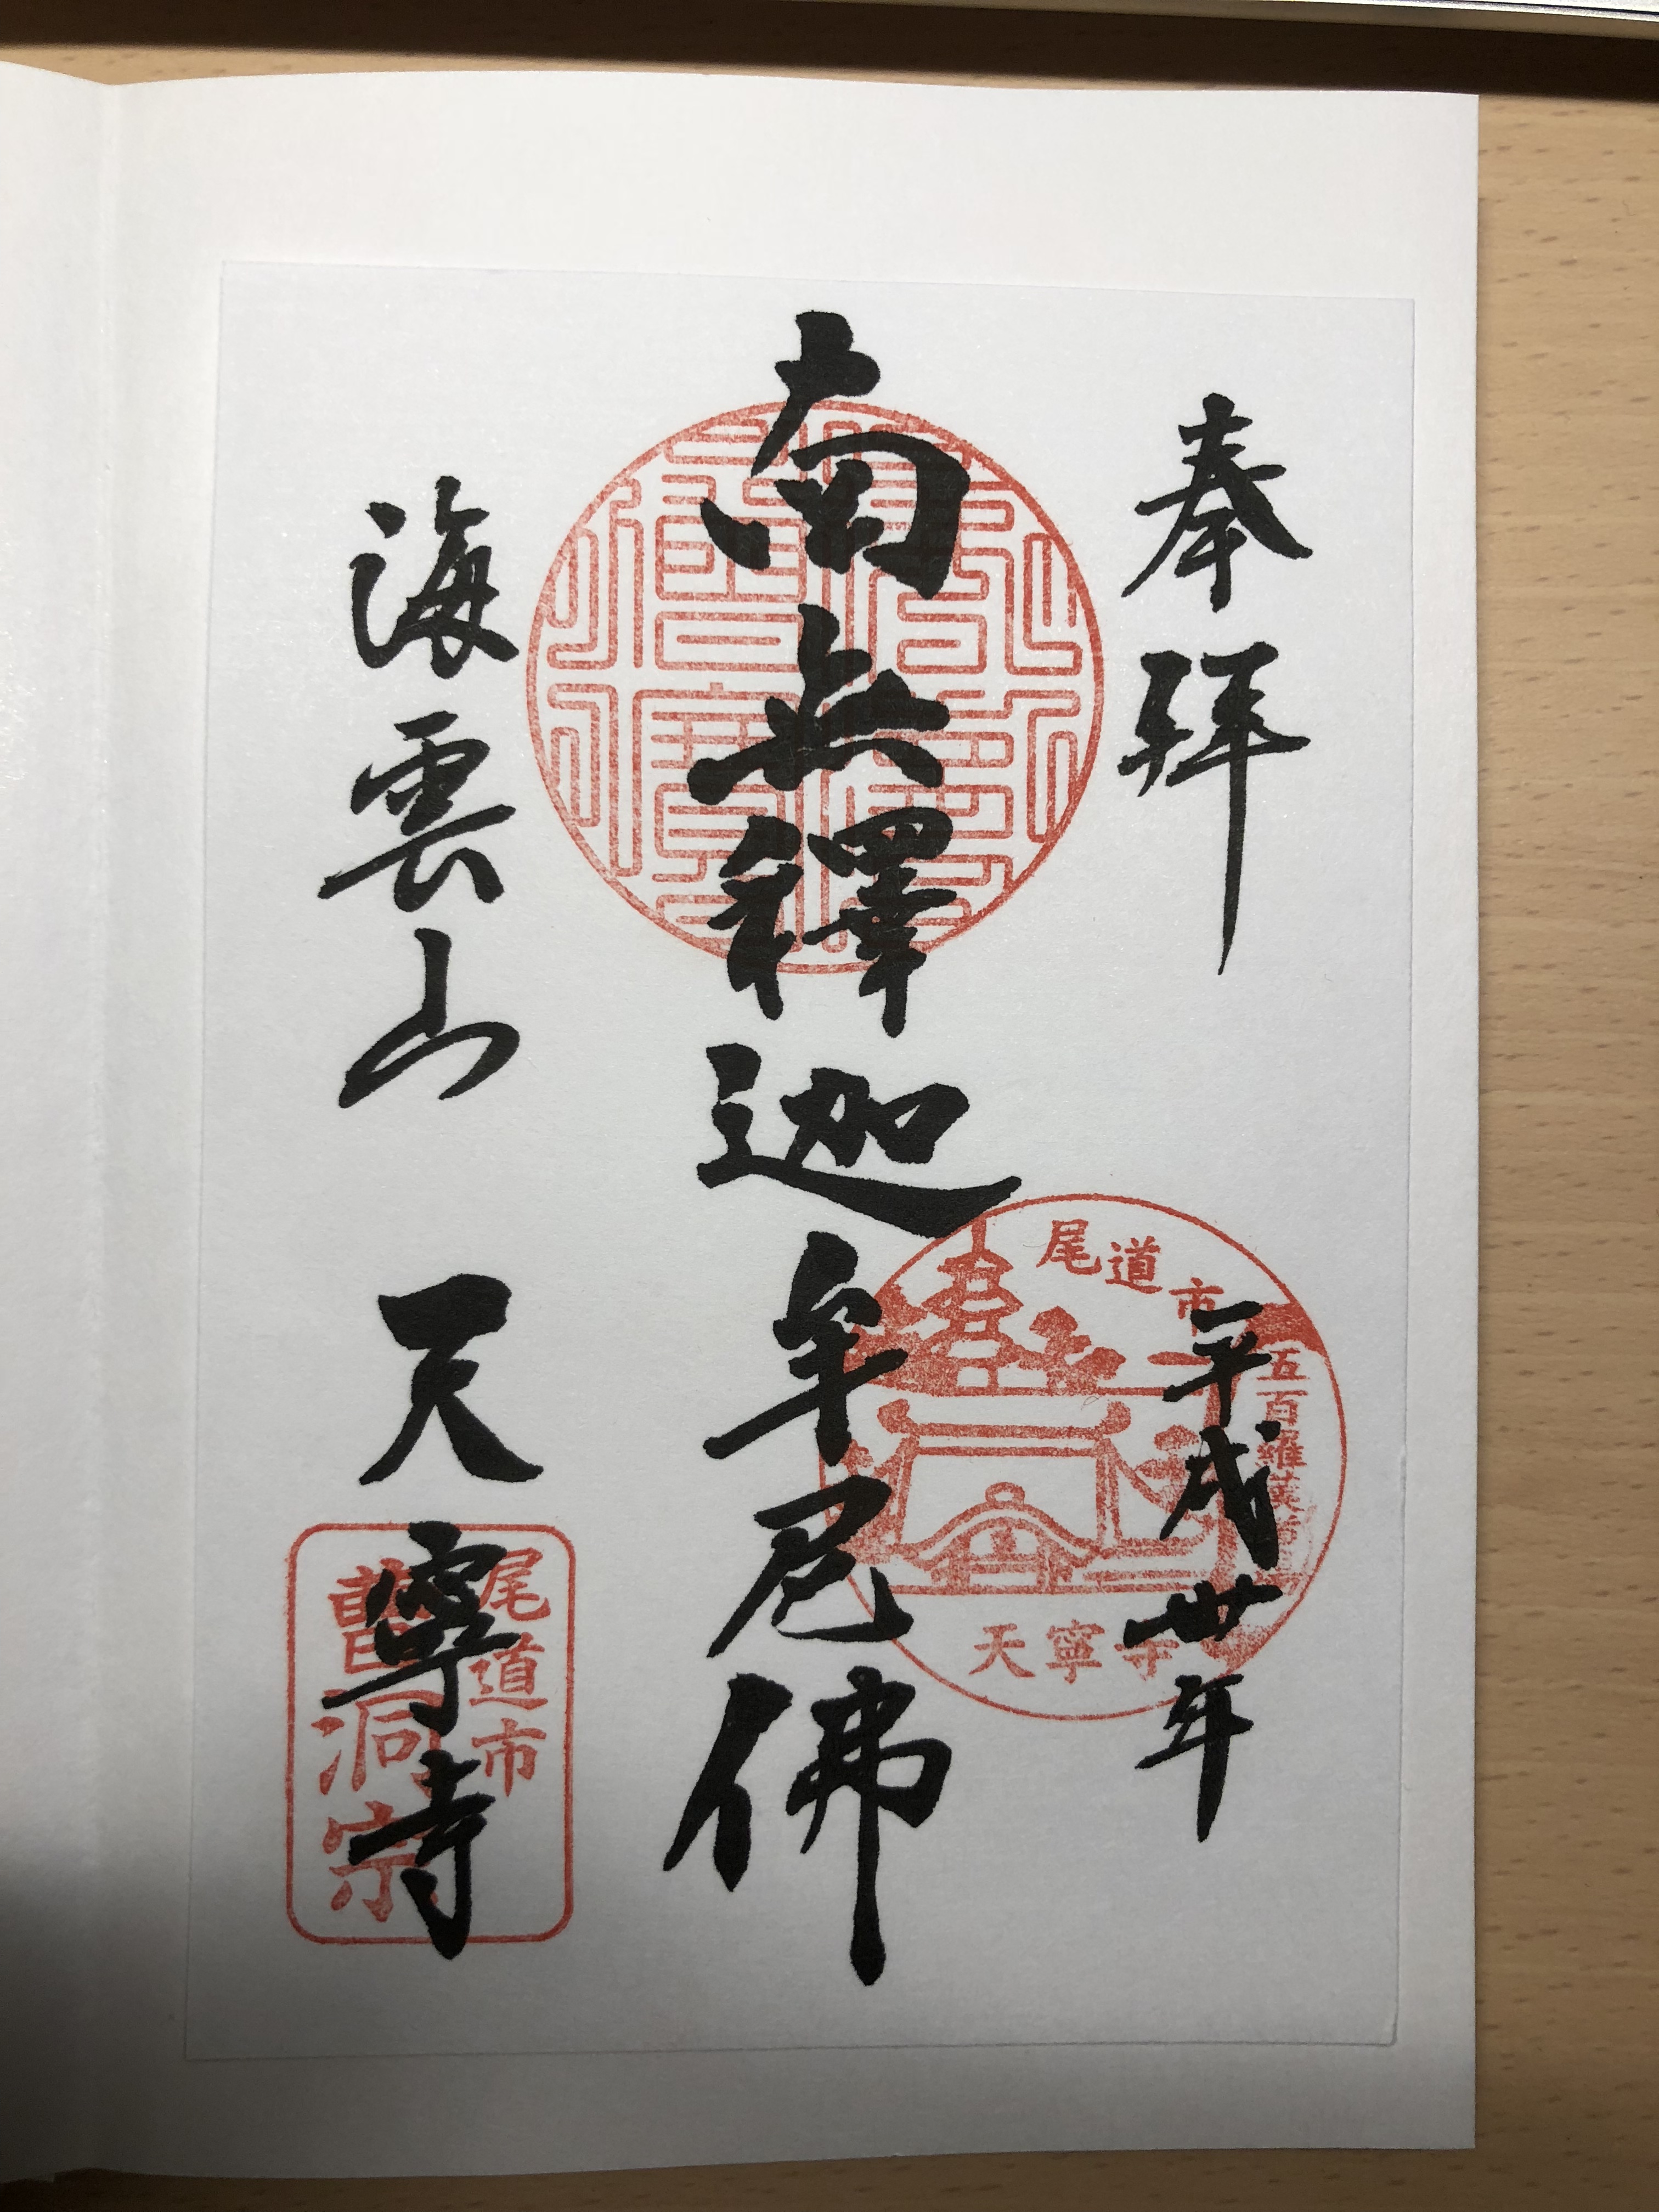 奉拝
平成卅年
南無釋迦牟尼佛
海雲山 天寧寺
尾道市
五百羅漢
天寧寺
尾道市
曹洞宗